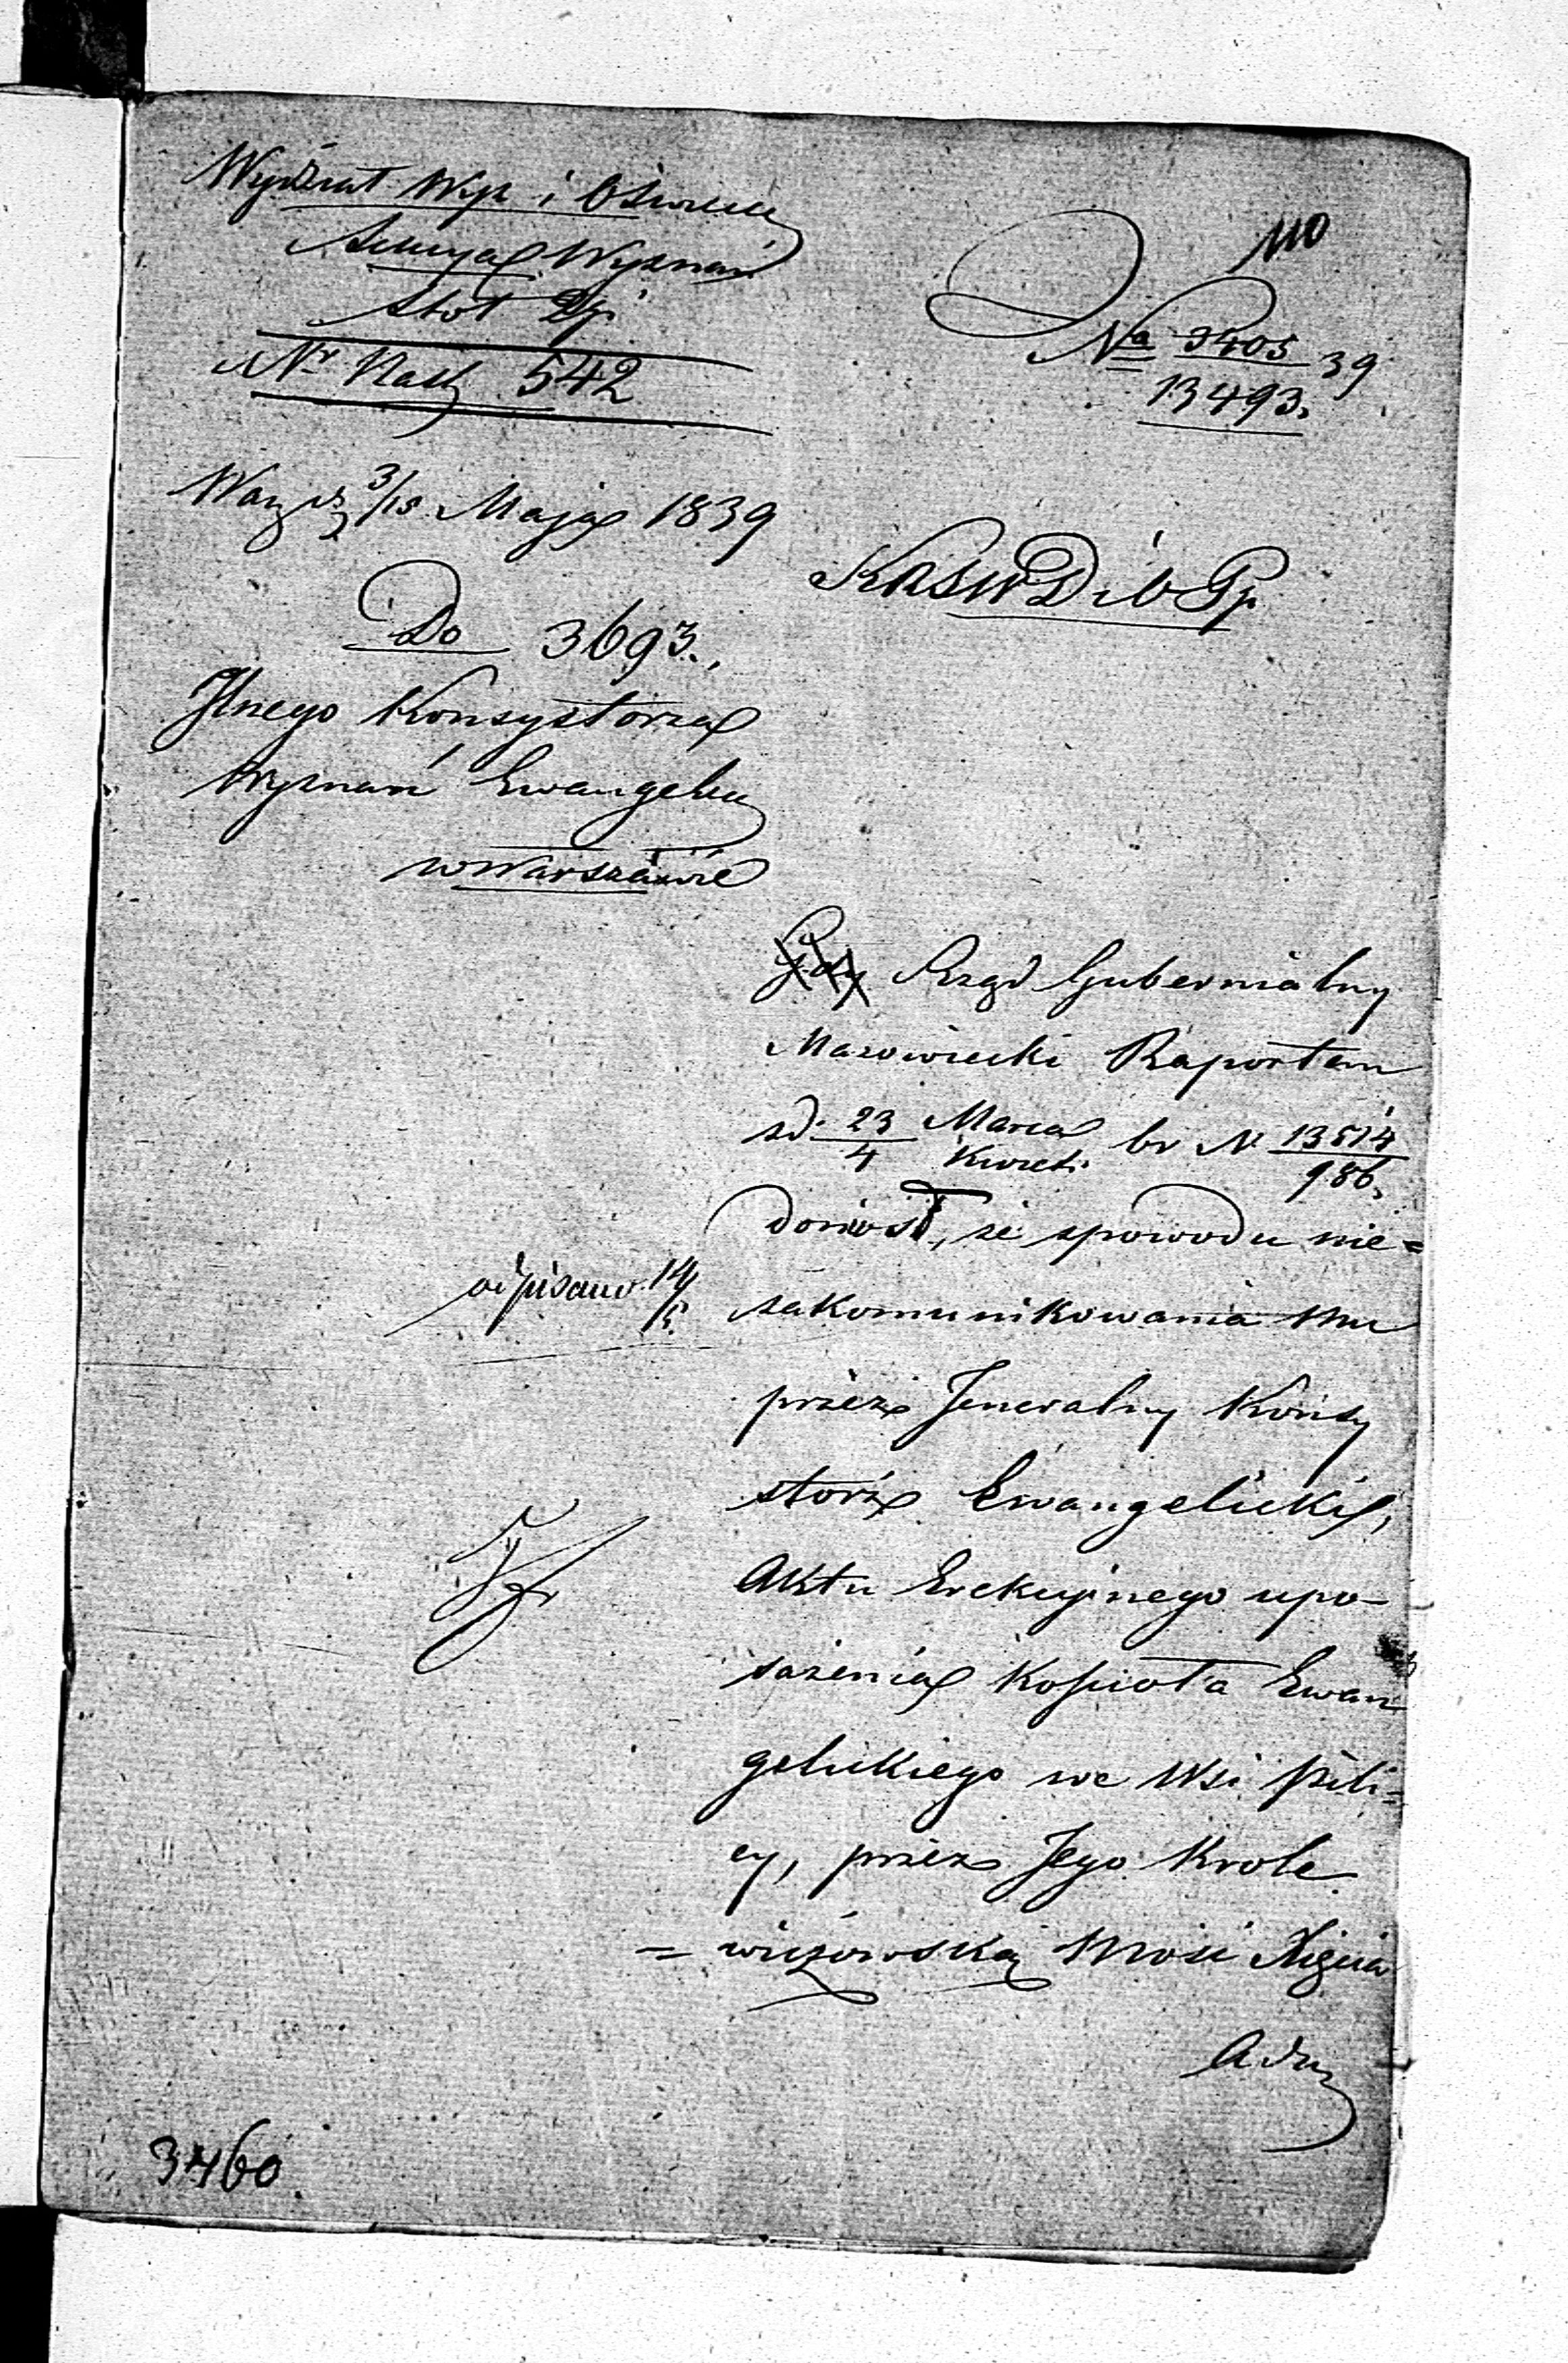 Wydział Wyz i Oświece
Sekcya Wyznań
Stoł
Nr Nasz 542
110
Na 3405 39
13493.
Warsz d 3/15 Maja 1839
KRSWD i O Pp
Do 3693.
Jlnego Konsystorza
Wyznań Ewangelic
w Warszawie
Gdy Rząd Gubernialny
Mazowiecki Raportem
zd. 23 Marca br N 13514
4 Kwiet. 986.
doniosł, że zpowodu nie=
zakomunikowania mu
przez Jeneralny Konsy
storz Ewangelicki,
Aktu Erekcyjnego upo-
sażenia Kościoła Ewan
gelickiego we Wsi Pili=
cy, przez Jego Krole
= wiczowską Mość Xięcia
Ada
odpisano 14/5.
3460.